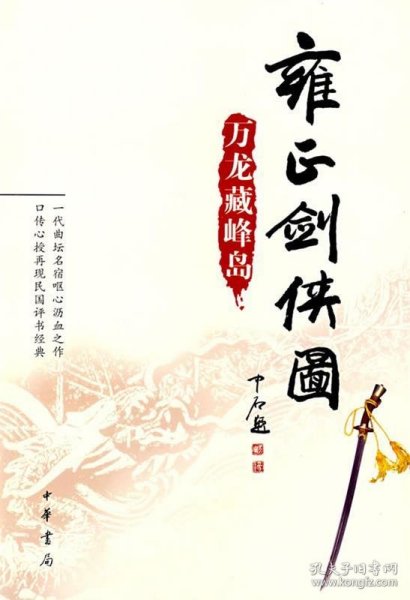 雍正剑侠圖
万龙藏峰岛
一代曲坛名宿呕心沥血之作
口传心授再现民国评书经典
中石题
中華书局
孔夫子旧书网
www.kongfz.com